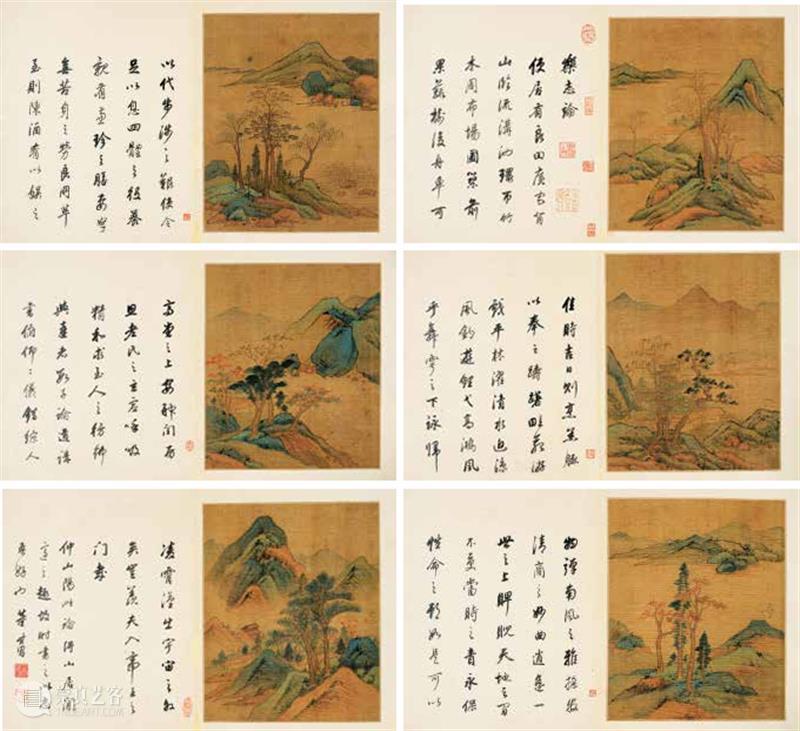 樂志論
使居有良田廣宅背
山臨流溝池環帀竹
木周布場圃築前
果蔬樹後舟車可
以代步涉之艱使令
足以息四體之役養
親有兼珍之膳妻孥
無苦身之勞良朋萃
至則陳酒肴以娛之
佳時吉日則烹羔豚
以奉之躊躇畦苑遊
戲平林濯清水追涼
風釣遊鯉弋高鴻風
乎舞雩之下詠歸
高堂之上安神閨房
思老氏之玄虛呼吸
精和求至人之彷彿
與達者數子論道講
書俯仰二儀錯綜人
物彈南風之雅操發
清商之妙曲逍遙一
世之上睥睨天地之間
不受當時之責永保
性命之期如是可以
凌霄漢出宇宙之外
矣豈羨夫入帝王之
門哉
仲山陽此論得山居閒
適之趣故時書之以志
吾好 董其昌
崇真艺客